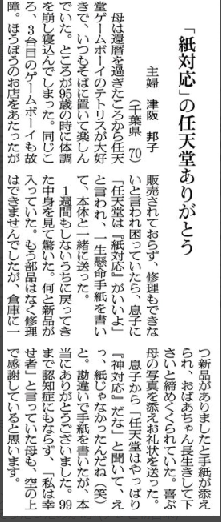 「紙対応」の任天堂ありがとう
主婦　津阪　邦子
（千葉県　70）
母は還暦を過ぎたころから任天
堂ゲームボーイのテトリスが大好
きで、いつもそばに置いて楽しん
でいた。ところが95歳の時に体調
を崩し寝込んでしまった。同じこ
ろ、3台目のゲームボーイも故
障。ほうぼうのお店をあたったが
販売されておらず、修理もできな
いと言われ困っていたら、息子に
「任天堂は『紙対応』がいいよ」
と言われ、一生懸命手紙を書い
て、本体と一緒に送った。
1週間もしないうちに戻ってき
た中身を見て驚いた。何と新品が
入っていた。もう部品はなく修理
はできませんでしたが、倉庫に一
つ新品がありましたと手紙が添え
られ、おばあちゃん長生きして下
さいと締めくくられていた。喜ぶ
母の写真を添えお礼状を送った。
息子から「任天堂はやっぱり
『神対応』だな」と聞いて、え
っ、紙じゃなかったんだね（笑）
と。勘違いで手紙を書いたが、本
当にありがとうございました。99
まで認知症にもならず、「私は幸
せ者」と言っていた母も、空の上
で感謝していると思います。